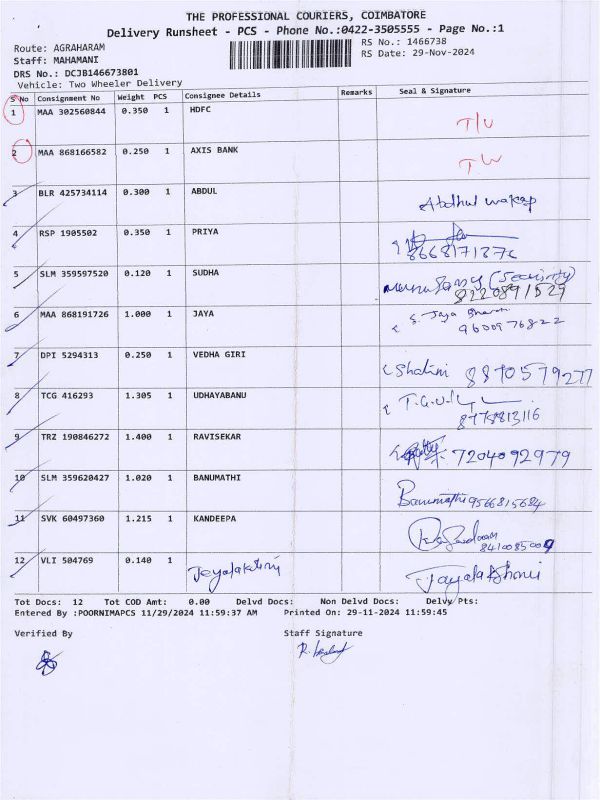 THE PROFESSIONAL COURIERS, COIMBATORE
Delivery Runsheet - PCS - Phone No.:0422-3505555 - Page No.:1
Route: AGRAHARAM
RS No.: 1466738
Staff: MAHAMANI
RS Date: 29-Nov-2024
DRS No.: DCJB146673801
Vehicle: Two Wheeler Delivery
S No Consignment No Weight PCS Consignee Details Remarks Seal & Signature
1 MAA 302560844 0.350 1 HDFC
2 MAA 868166582 0.250 1 AXIS BANK
3 BLR 425734114 0.300 1 ABDUL Abdhul wahap
4 RSP 1905502 0.350 1 PRIYA
8668171276
5 SLM 359597520 0.120 1 SUDHA (Security)
8220891529
6 MAA 868191726 1.000 1 JAYA S. Jaya Bharathi
9600976822
7 DPI 5294313 0.250 1 VEDHA GIRI Shalini 8870579277
8 TCG 416293 1.305 1 UDHAYABANU
8778813116
9 TRZ 190846272 1.400 1 RAVISEKAR 7204092979
10 SLM 359620427 1.020 1 BANUMATHI Banumathi 9566815684
11 SVK 60497360 1.215 1 KANDEEPA
8410085009
12 VLI 504769 0.140 1 Jeyalakshmi Jayalakshmi
Tot Docs: 12 Tot COD Amt: 0.00 Delvd Docs: Non Delvd Docs: Delvy Pts:
Entered By :POORNIMAPCS 11/29/2024 11:59:37 AM Printed On: 29-11-2024 11:59:45
Verified By Staff Signature